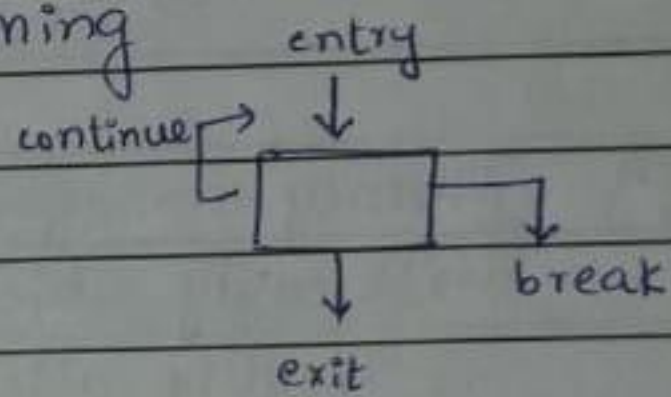 ning
entry
continue
break
exit